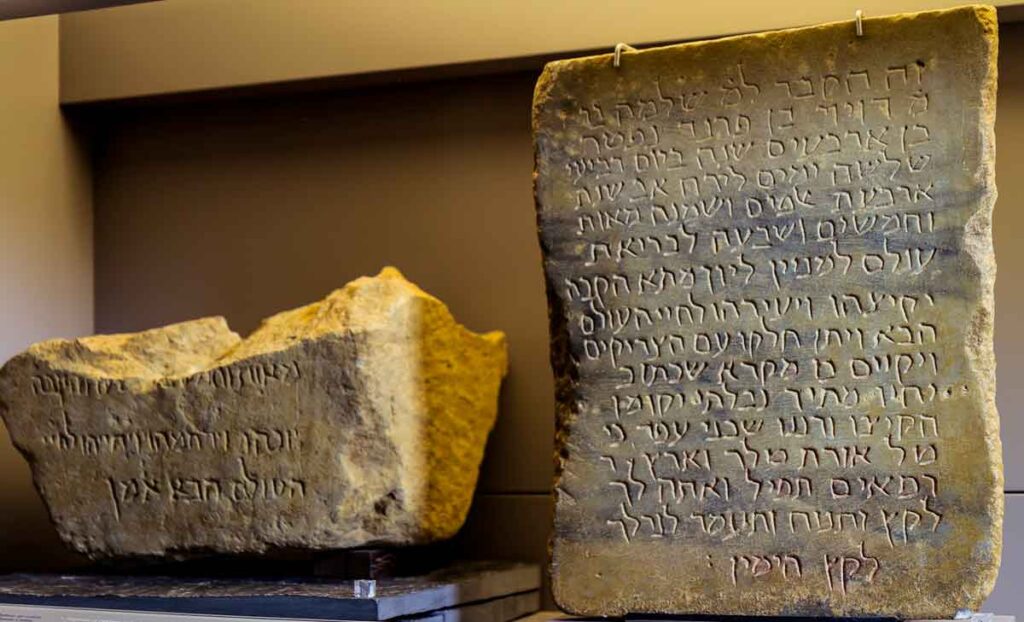 זה הקבר לר שלמה בר
ר דויד בן פרנד נפטר
בן ארבעים שנה ביום רביעי
שלשה ימים לירח אב שנת
ארבעת אלפים ושמנה מאות
וחמשים ושבעה לבריאת
עולם למנין ליון מתא הקבה
יקיצהו וישירהו לחיי העולם
הבא ויתן חלקו עם הצדיקים
ויקיים בו מקרא שכתוב
יחיו מתיך נבלתי יקומו
הקיצו ורננו שכני עפר כי
טל אורת טלך וארץ
רפאים תפיל ואתה לך
לקץ ותנוח ותעמד לגרלך
לקץ הימין
מאות הקבה
יזכהו וירחמהו ויחייהו לחיי
העולם הבא אמן